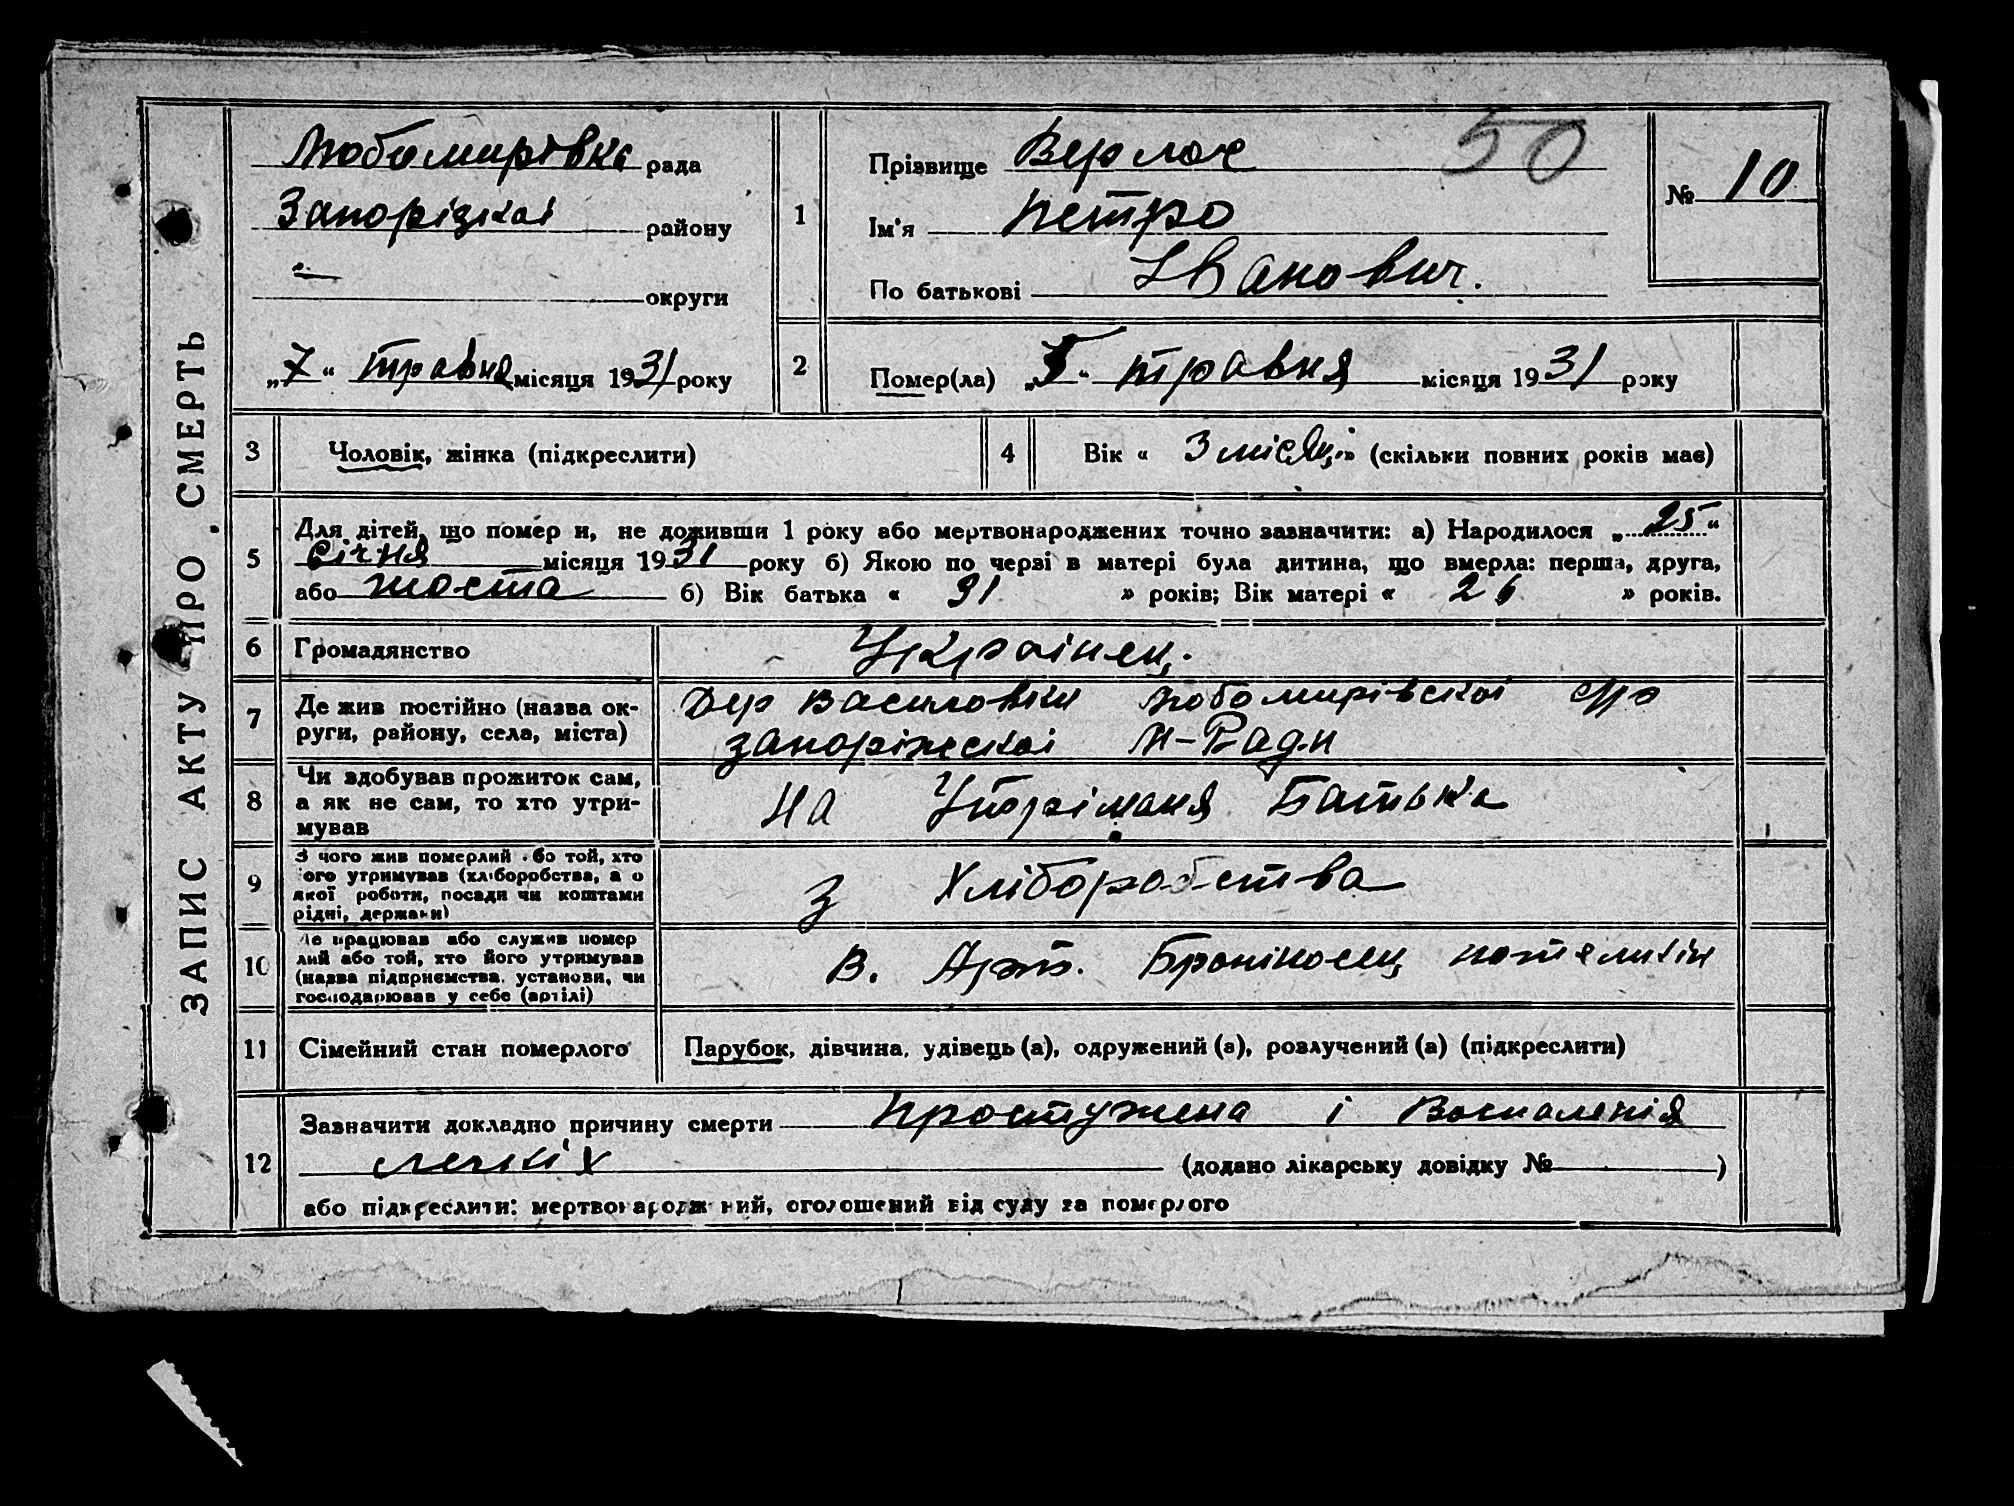 ЗАПИС АКТУ ПРО СМЕРТЬ
Любомирівка рада
Запорізкоі району
округи
„7“ травня місяця 1931 року
1
Прізвище Верлос 50
Ім'я Петро
По батькові Іванович.
№ 10
2
Помер(ла) „5“ травня місяця 1931 року
3 Чоловік, жінка (підкреслити)
4 Вік « 3 місяці » (скільки повних років має)
5
Для дітей, що помер и, не доживши 1 року або мертвонароджених точно зазначити: а) Народилося „25“
Січня місяця 1931 року б) Якою по черзі в матері була дитина, що вмерла: перша, друга,
або шоста б) Вік батька « 31 » років; Вік матері « 26 » років.
6 Громадянство Украінец.
7 Де жив постійно (назва ок-
руги, району, села, міста)
Дер Василовки Любомирівскоі с/ра
запоріжскоі м-Ради
8 Чи здобував прожиток сам,
а як не сам, то хто утри-
мував
на Утріманя Батька
9 З чого жив померлий бо той, хто
ого утримував (хліборобства, а о
якої роботи, посади чи коштами
рідні, держави)
з Хліборобства
10 Де працював або служив помер
лий або той, хто його утримував
(назва підприємства, установи, чи
господарював у себе (артілі)
В. Арт. Броніносец
11 Сімейний стан померлого Парубок, дівчина, удівець (а), одружений (а), розлучений (а) (підкреслити)
12 Зазначити докладно причину смерти Простужена і Воспаленія
легкіх (додано лікарську довідку № )
або підкреслити: мертвонародж ний, оголошений від суду за померлого